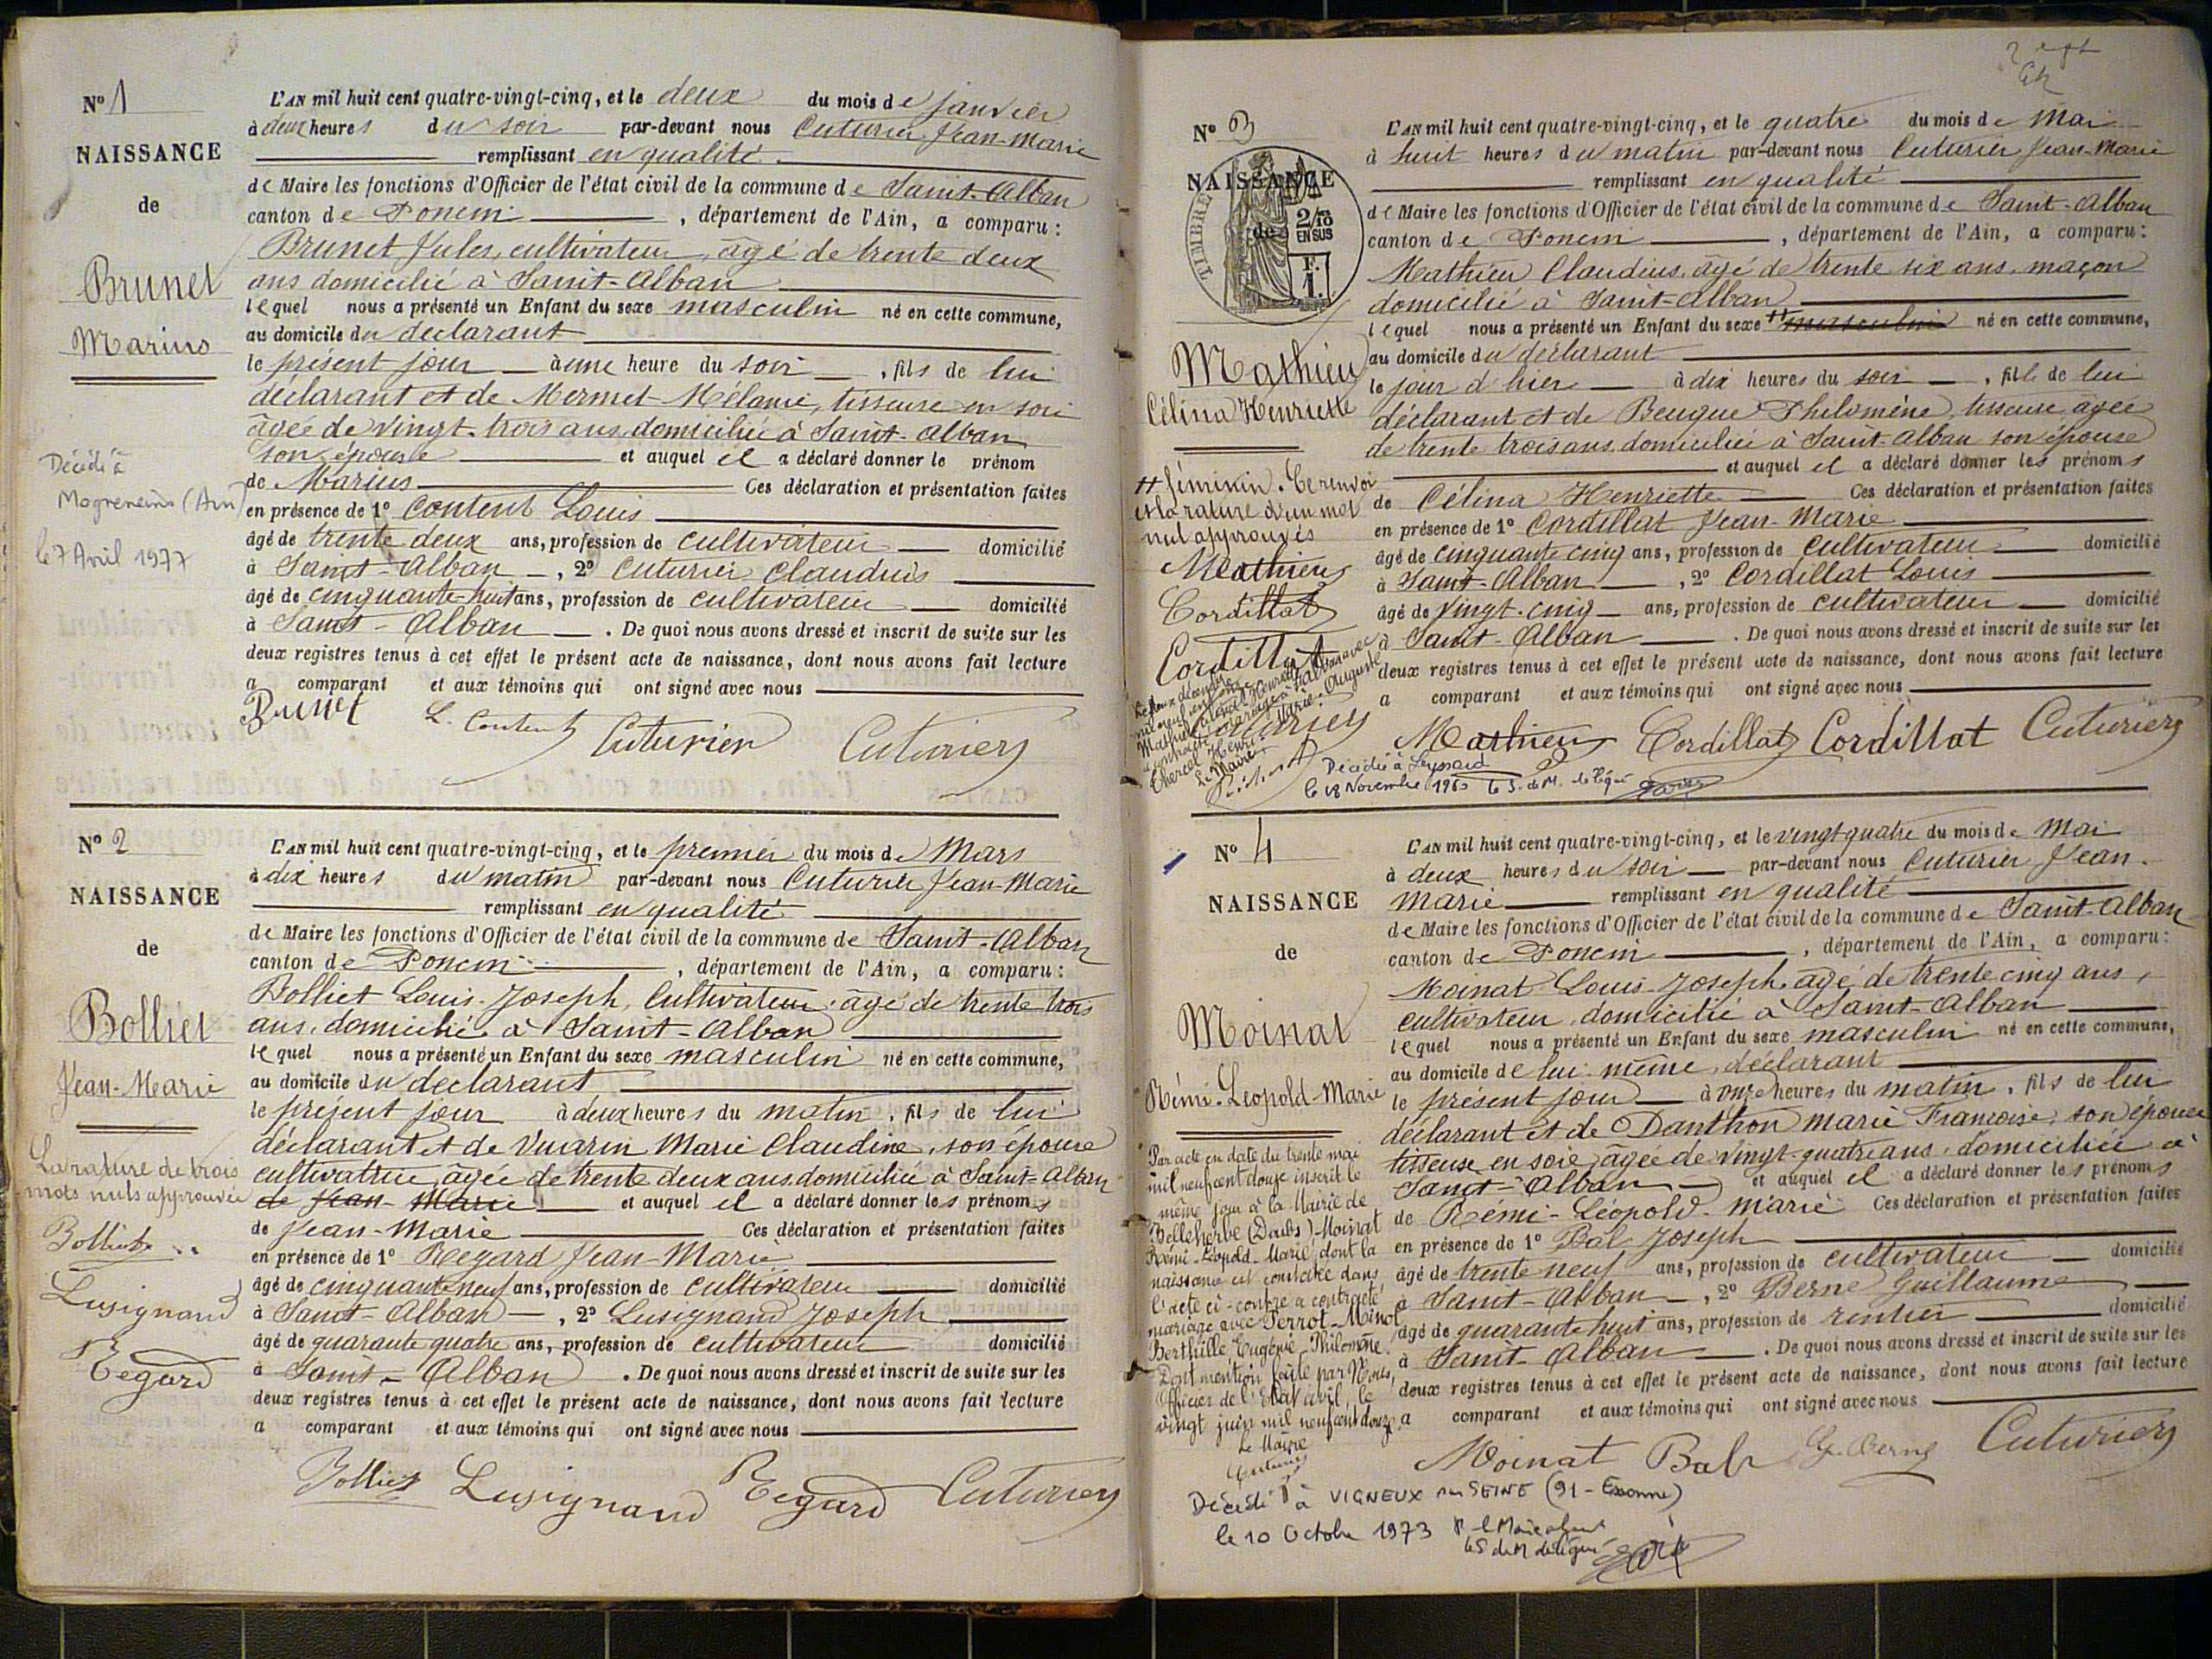 N° 1
NAISSANCE
de
Brunet
Marius
Décédé à
Mogneneins (Ain)
le 7 Avril 1977
L'AN mil huit cent quatre-vingt-cinq, et le deux du mois de janvier
à deux heures du soir par-devant nous Cuturier Jean-Marie
remplissant en qualité
de Maire les fonctions d'Officier de l'état civil de la commune de Saint-Alban
canton de Poncin, département de l'Ain, a comparu:
Brunet Jules, cultivateur, âgé de trente deux
ans domicilié à Saint-Alban
lequel nous a présenté un Enfant du sexe masculin né en cette commune,
au domicile du déclarant
le présent jour à une heure du soir, fils de lui
déclarant et de Mermet Mélanie, tisseuse en soie
âgée de vingt-trois ans domiciliée à Saint-Alban
son épouse et auquel il a déclaré donner le prénom
de Marius Ces déclaration et présentation faites
en présence de 1° Content Louis
âgé de trente deux ans, profession de cultivateur domicilié
à Saint-Alban, 2° Cuturier Claudius
âgé de cinquante-huit ans, profession de cultivateur domicilié
à Saint-Alban. De quoi nous avons dressé et inscrit de suite sur les
deux registres tenus à cet effet le présent acte de naissance, dont nous avons fait lecture
a comparant et aux témoins qui ont signé avec nous
Brunet L. Content Cuturier Cuturier
N° 2
NAISSANCE
de
Bolliet
Jean-Marie
La rature de trois
mots nuls approuvée
Bolliet
Lusignand
Regard
L'AN mil huit cent quatre-vingt-cinq, et le premier du mois de Mars
à dix heures du matin par-devant nous Cuturier Jean-Marie
remplissant en qualité
de Maire les fonctions d'Officier de l'état civil de la commune de Saint-Alban
canton de Poncin, département de l'Ain, a comparu:
Bolliet Louis-Joseph, cultivateur, âgé de trente-trois
ans, domicilié à Saint-Alban
lequel nous a présenté un Enfant du sexe masculin né en cette commune,
au domicile du déclarant
le présent jour à deux heures du matin, fils de lui
déclarant et de Vuarin Marie Claudine, son épouse
cultivatrice, âgée de trente deux ans domiciliée à Saint-Alban
de Jean-Marie et auquel il a déclaré donner les prénoms
de Jean-Marie Ces déclaration et présentation faites
en présence de 1° Regard Jean-Marie
âgé de cinquante neuf ans, profession de cultivateur domicilié
à Saint-Alban, 2° Lusignand Joseph
âgé de quarante quatre ans, profession de cultivateur domicilié
à Saint-Alban. De quoi nous avons dressé et inscrit de suite sur les
deux registres tenus à cet effet le présent acte de naissance, dont nous avons fait lecture
a comparant et aux témoins qui ont signé avec nous
Bolliet Lusignand Regard Cuturier
N° 3
NAISSANCE
de
TIMBRE
2/10
EN SUS
F.
1.
Mathieu
Célina Henriette
++ féminin. Ce renvoi
et la rature d'un mot
nul approuvés
Mathieu
Cordillat
Cordillat
Cuturier
L'AN mil huit cent quatre-vingt-cinq, et le quatre du mois de Mai
à huit heures du matin par-devant nous Cuturier Jean-Marie
remplissant en qualité
de Maire les fonctions d'Officier de l'état civil de la commune de Saint-Alban
canton de Poncin, département de l'Ain, a comparu:
Mathieu Claudius, âgé de trente six ans, maçon
domicilié à Saint-Alban
lequel nous a présenté un Enfant du sexe ++ masculin né en cette commune,
au domicile du déclarant
le jour d'hier à dix heures du soir, fille de lui
déclarant et de Beugue Philomène, tisseuse, âgée
de trente trois ans, domiciliée à Saint-Alban son épouse
et auquel il a déclaré donner les prénoms
de Célina Henriette Ces déclaration et présentation faites
en présence de 1° Cordillat Jean-Marie
âgé de cinquante cinq ans, profession de cultivateur domicilié
à Saint-Alban, 2° Cordillat Louis
âgé de vingt-cinq ans, profession de cultivateur domicilié
à Saint-Alban. De quoi nous avons dressé et inscrit de suite sur les
deux registres tenus à cet effet le présent acte de naissance, dont nous avons fait lecture
a comparant et aux témoins qui ont signé avec nous
Mathieu Cordillat Cordillat Cuturier
Décédée à Leyssard
le 18 Novembre 1960 le S. de M. délégué
N° 4
NAISSANCE
de
Moinat
Rémi-Léopold-Marie
Par acte en date du trente mai
mil neuf cent douze inscrit le
même jour à la Mairie de
Belleherbe (Doubs) Moinat
Rémi-Léopold-Marie, dont la
naissance est constatée dans
l'acte ci-contre a contracté
mariage avec Perrot-Minot
Berthille Eugénie Philomène.
Dont mention faite par Nous,
Officier de l'Etat civil, le
vingt juin mil neuf cent douze
Le Maire
Cuturier
L'AN mil huit cent quatre-vingt-cinq, et le vingt quatre du mois de Mai
à deux heures du soir par-devant nous Cuturier Jean-
Marie remplissant en qualité
de Maire les fonctions d'Officier de l'état civil de la commune de Saint-Alban
canton de Poncin, département de l'Ain, a comparu:
Moinat Louis-Joseph, âgé de trente cinq ans,
cultivateur, domicilié à Saint-Alban
lequel nous a présenté un Enfant du sexe masculin né en cette commune,
au domicile de lui même, déclarant
le présent jour à onze heures du matin, fils de lui
déclarant et de Danthon Marie Françoise, son épouse
tisseuse en soie, âgée de vingt-quatre ans, domiciliée à
Saint-Alban et auquel il a déclaré donner les prénoms
de Rémi-Léopold-Marie Ces déclaration et présentation faites
en présence de 1° Bal Joseph
âgé de trente neuf ans, profession de cultivateur domicilié
à Saint-Alban, 2° Berne Guillaume
âgé de quarante huit ans, profession de rentier domicilié
à Saint-Alban. De quoi nous avons dressé et inscrit de suite sur les
deux registres tenus à cet effet le présent acte de naissance, dont nous avons fait lecture
a comparant et aux témoins qui ont signé avec nous
Moinat Bal G. Berne Cuturier
Décédé à VIGNEUX sur SEINE (91 - Essonne)
le 10 Octobre 1973